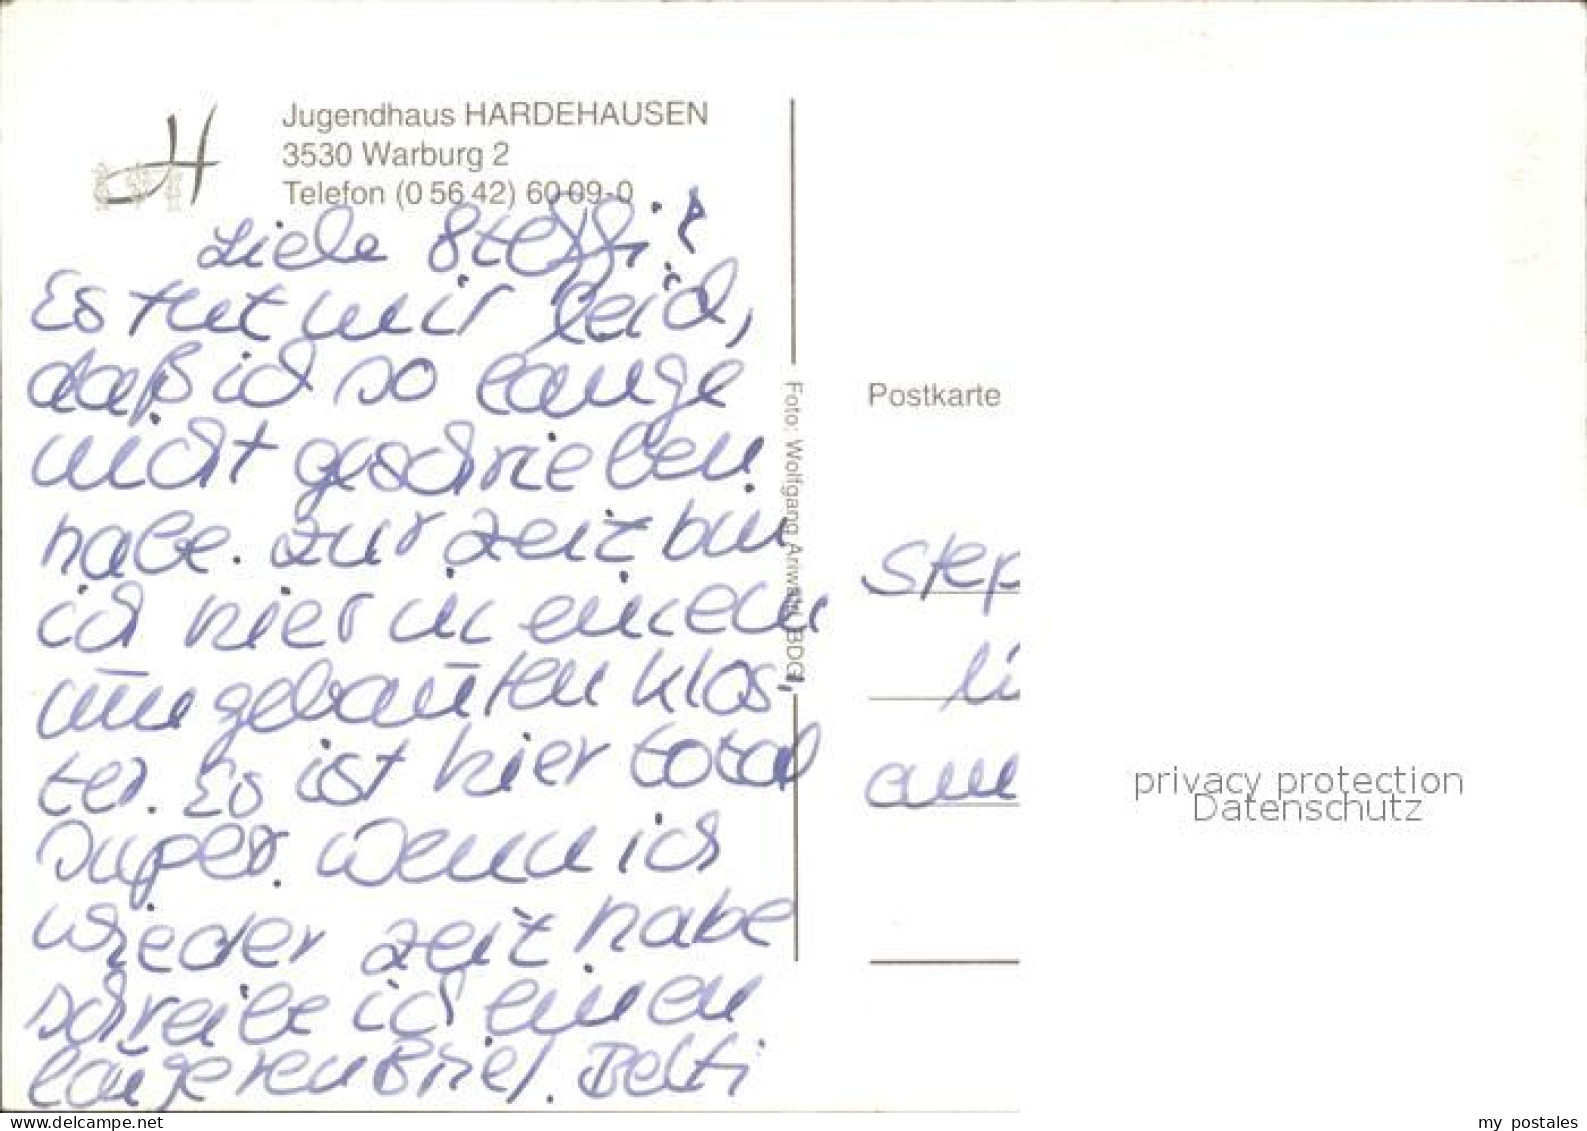 Jugendhaus HARDEHAUSEN
3530 Warburg 2
Telefon (0 56 42) 60 09-0
Liebe Steffi!
Es tut mir leid,
daß ich so lange
nicht geschrieben
habe. zur zeit bin
ich hier in einem
umgebauten Klos-
ter. Es ist hier total
super. Wenn ich
wieder zeit habe
schreibe ich einen
längeren Brief. Betti
Foto: Wolfgang BDG
Postkarte
Step
Li
am
privacy protection
Datenschutz
www.delcampe.net
my_postales